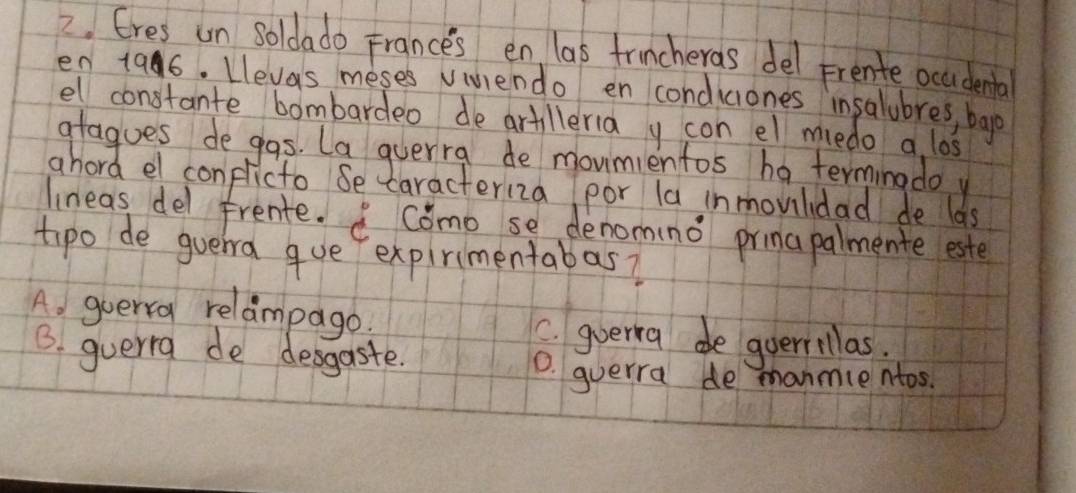 2. Eres un soldado Francés en las trincheras del Frente occidental
en 1916. Llevas meses viviendo en condiciones insalubres, bajo
el constante bombardeo de artilleria y con el miedo a los
ataques de gas. La guerra de movimientos ha terminado y
ahora el conflicto se caracteriza por la inmovilidad de las
lineas del Frente. ¿ Cómo se denominó principalmente este
tipo de guerra que expirimentabas?
A. guerra relámpago.
B. guerra de desgaste.
C. guerra de guerrillas.
D. guerra de